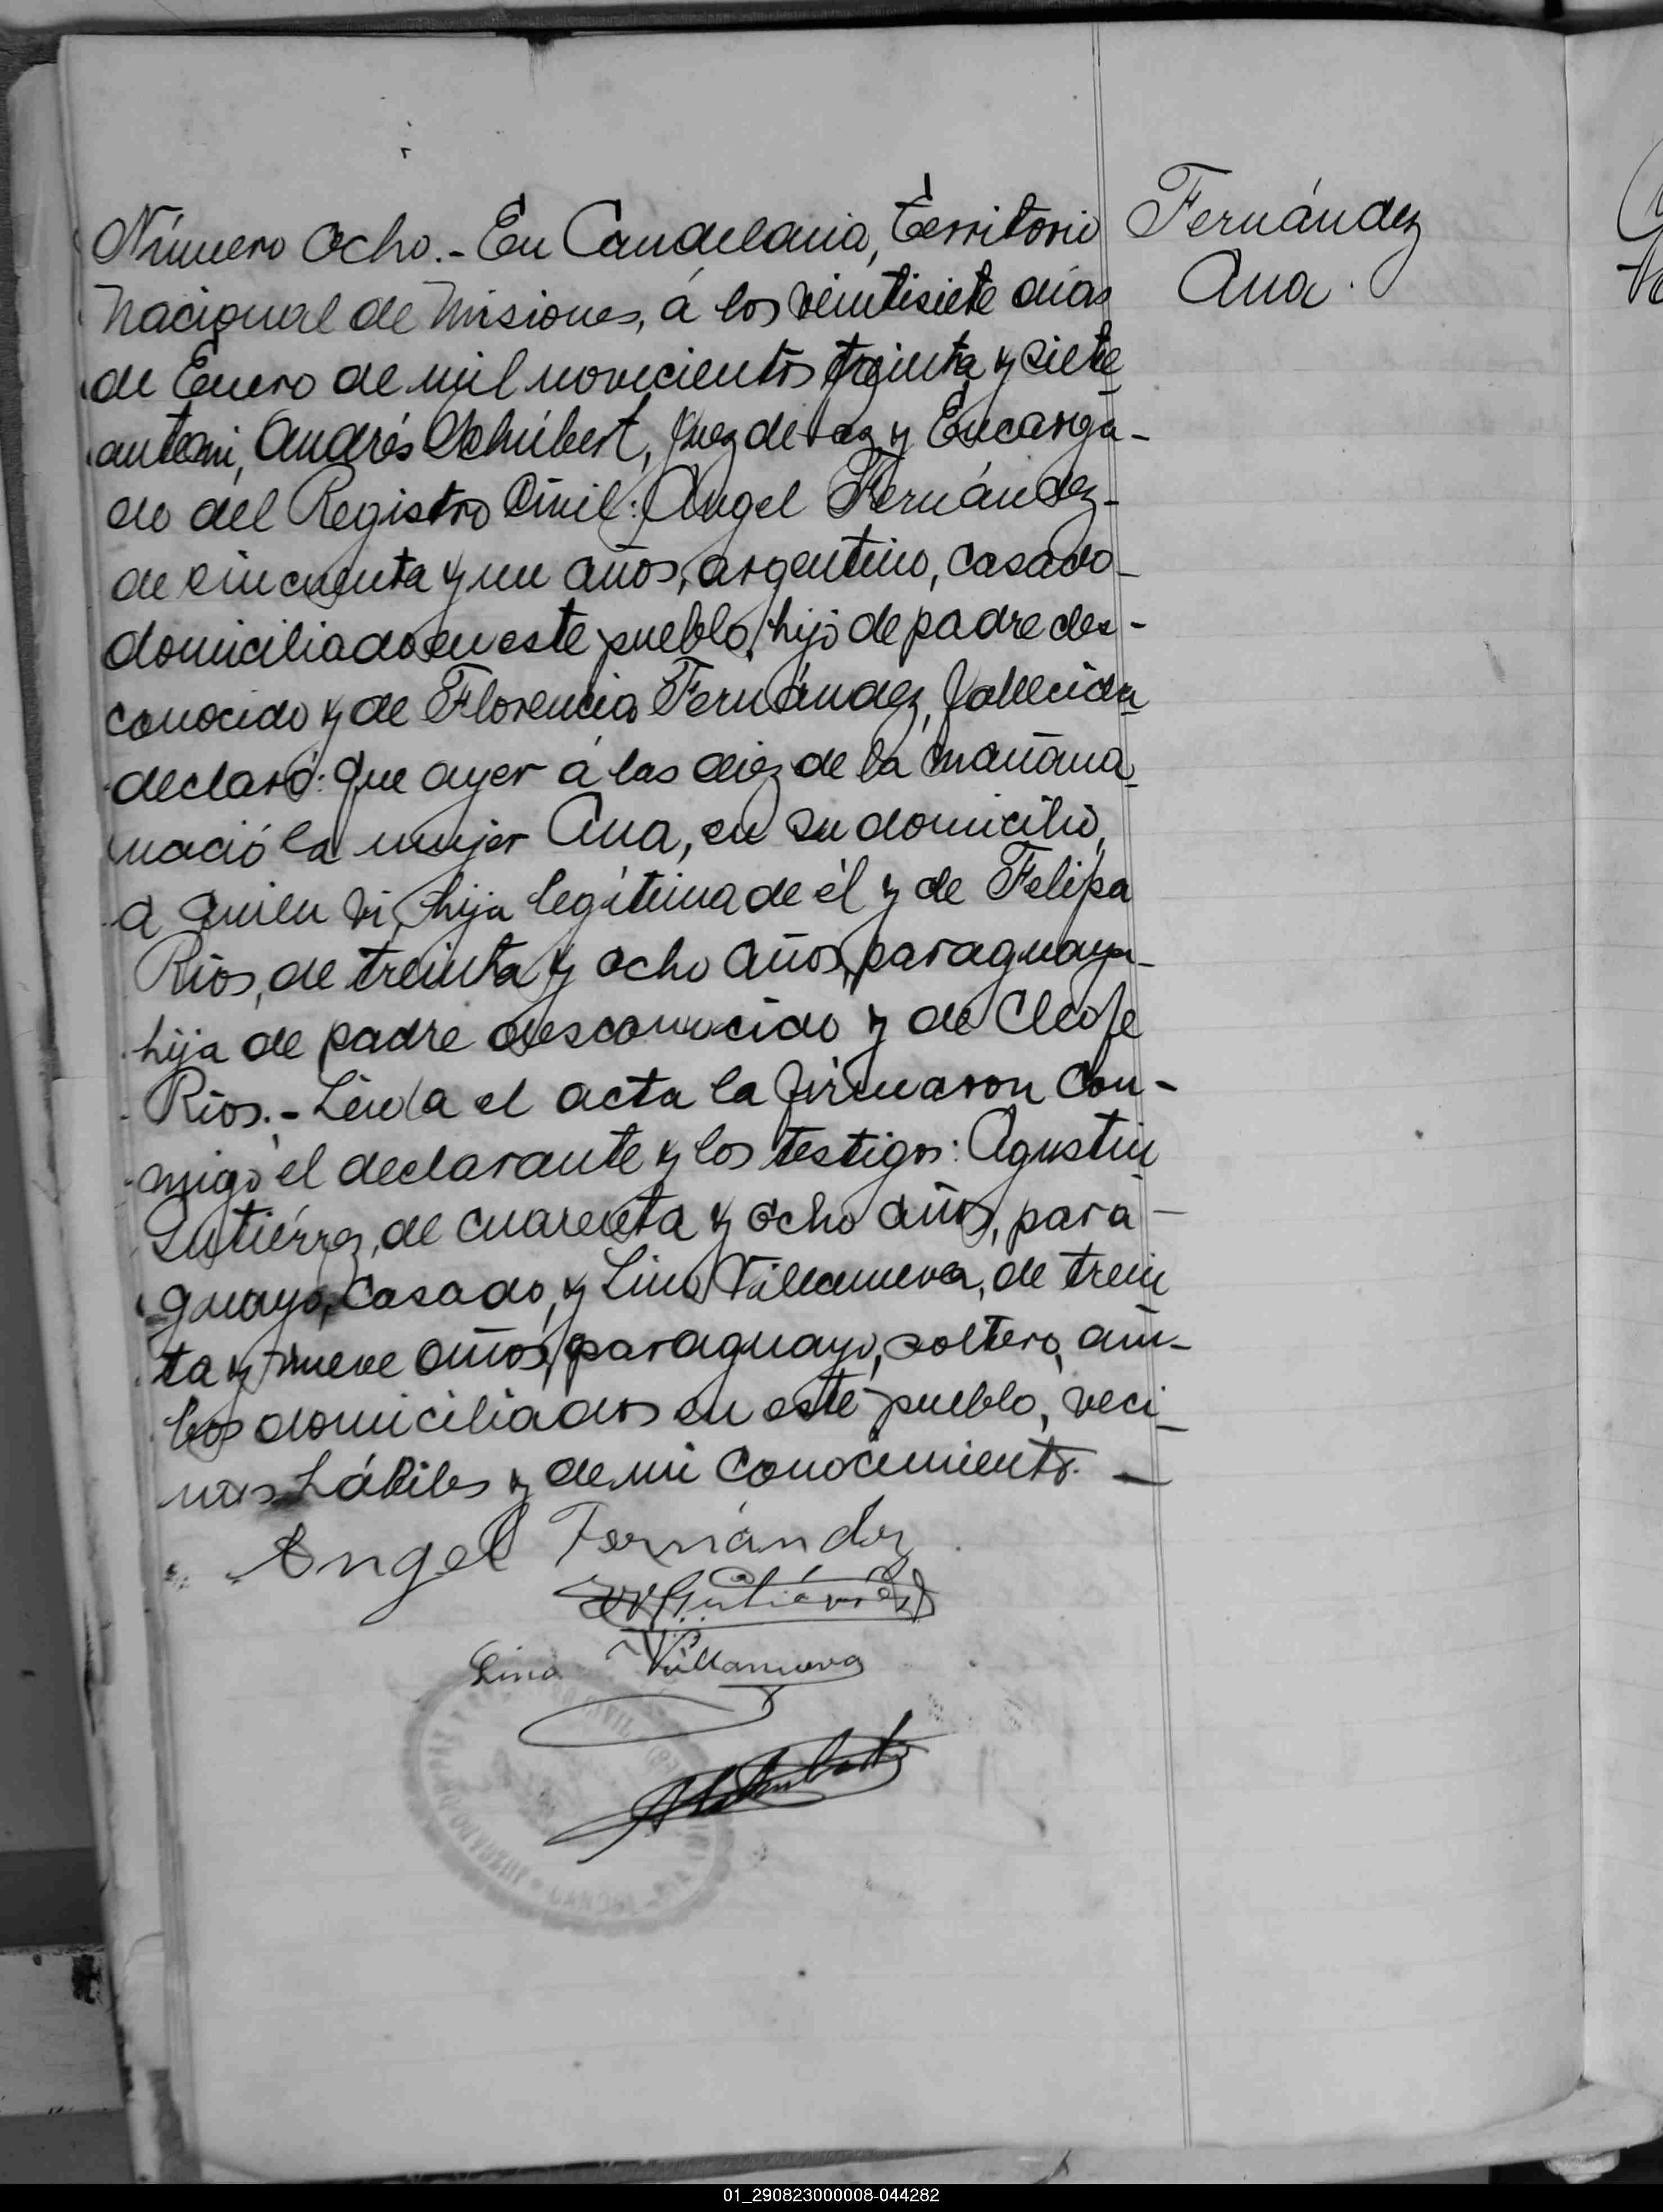 Número Ocho.- En Candelaria, Territorio
Nacional de Misiones, á los veintisiete dias
de Enero de mil novecientos treinta y siete
ante mi, Andrés Schubert, Juez de Paz y Encarga-
do del Registro Civil: Angel Fernández-
de cincuenta y un años, argentino, casado-
domiciliado en este pueblo, hijo de padre des-
conocido y de Florencia Fernández, fallecida
declaró: Que ayer á las diez de la mañana
nació la mujer Ana, en su domicilio,
a quien vi, hija legítima de él y de Felipa
Rios, de treinta y ocho años, paraguaya-
hija de padre desconocido y de Cleofe
Rios.- Leida el acta la firmaron con-
migo el declarante y los testigos: Agustin
Gutiérrez, de cuarenta y ocho años, para-
guayo, casado, y Lino Villanueva, de trein
ta y nueve años, paraguayo, soltero, am-
bos domiciliados en este pueblo, veci-
nos hábiles y de mi conocimiento.-
Fernández
Ana.
Angel Fernández
Gutiérrez
Lino Villanueva
01_290823000008-044282